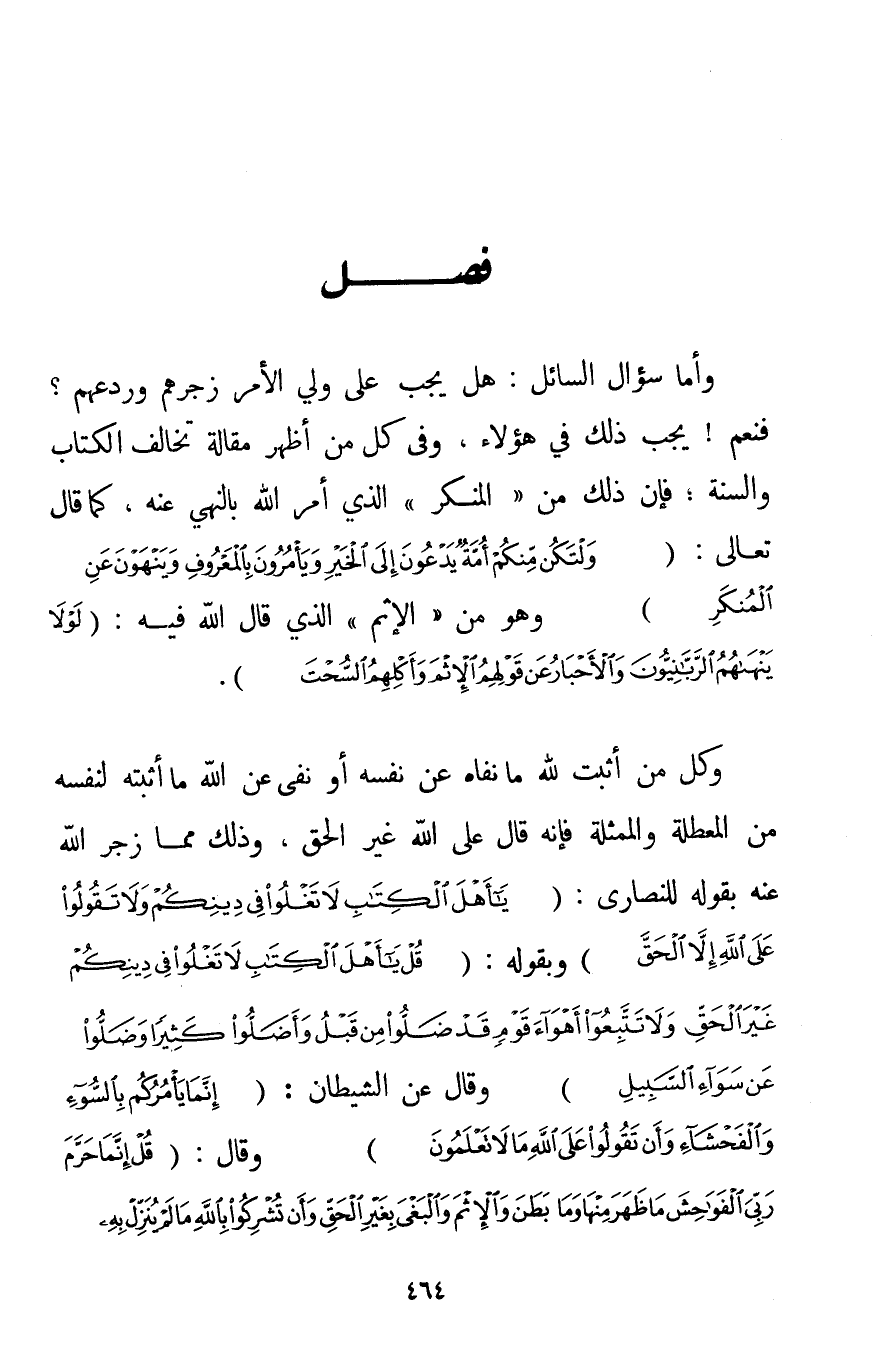 فصـــــل
وأما سؤال السائل : هل يجب على ولي الأمر زجرهم وردعهم ؟
فنعم ! يجب ذلك في هؤلاء ، وفى كل من أظهر مقالة تخالف الكتاب
والسنة ؛ فإن ذلك من « المنكر » الذي أمر الله بالنهي عنه ، كما قال
تعـالى : ( وَلْتَكُن مِّنكُمْ أُمَّةٌ يَدْعُونَ إِلَى ٱلْخَيْرِ وَيَأْمُرُونَ بِٱلْمَعْرُوفِ وَيَنْهَوْنَ عَنِ
ٱلْمُنكَرِ ) وهو من « الإثم » الذي قال الله فيـه : ( لَوْلَا
يَنْهَىٰهُمُ ٱلرَّبَّٰنِيُّونَ وَٱلْأَحْبَارُ عَن قَوْلِهِمُ ٱلْإِثْمَ وَأَكْلِهِمُ ٱلسُّحْتَ ) .
وكل من أثبت لله ما نفاه عن نفسه أو نفى عن الله ما أثبته لنفسه
من المعطلة والممثلة فإنه قال على الله غير الحق ، وذلك ممـا زجر الله
عنه بقوله للنصارى : ( يَٰٓأَهْلَ ٱلْكِتَٰبِ لَا تَغْلُوا۟ فِى دِينِكُمْ وَلَا تَقُولُوا۟
عَلَى ٱللَّهِ إِلَّا ٱلْحَقَّ ) وبقوله : ( قُلْ يَٰٓأَهْلَ ٱلْكِتَٰبِ لَا تَغْلُوا۟ فِى دِينِكُمْ
غَيْرَ ٱلْحَقِّ وَلَا تَتَّبِعُوٓا۟ أَهْوَآءَ قَوْمٍ قَدْ ضَلُّوا۟ مِن قَبْلُ وَأَضَلُّوا۟ كَثِيرًا وَضَلُّوا۟
عَن سَوَآءِ ٱلسَّبِيلِ ) وقال عن الشيطان : ( إِنَّمَا يَأْمُرُكُم بِٱلسُّوٓءِ
وَٱلْفَحْشَآءِ وَأَن تَقُولُوا۟ عَلَى ٱللَّهِ مَا لَا تَعْلَمُونَ ) وقال : ( قُلْ إِنَّمَا حَرَّمَ
رَبِّىَ ٱلْفَوَٰحِشَ مَا ظَهَرَ مِنْهَا وَمَا بَطَنَ وَٱلْإِثْمَ وَٱلْبَغْىَ بِغَيْرِ ٱلْحَقِّ وَأَن تُشْرِكُوا۟ بِٱللَّهِ مَا لَمْ يُنَزِّلْ بِهِۦ
٤٦٤